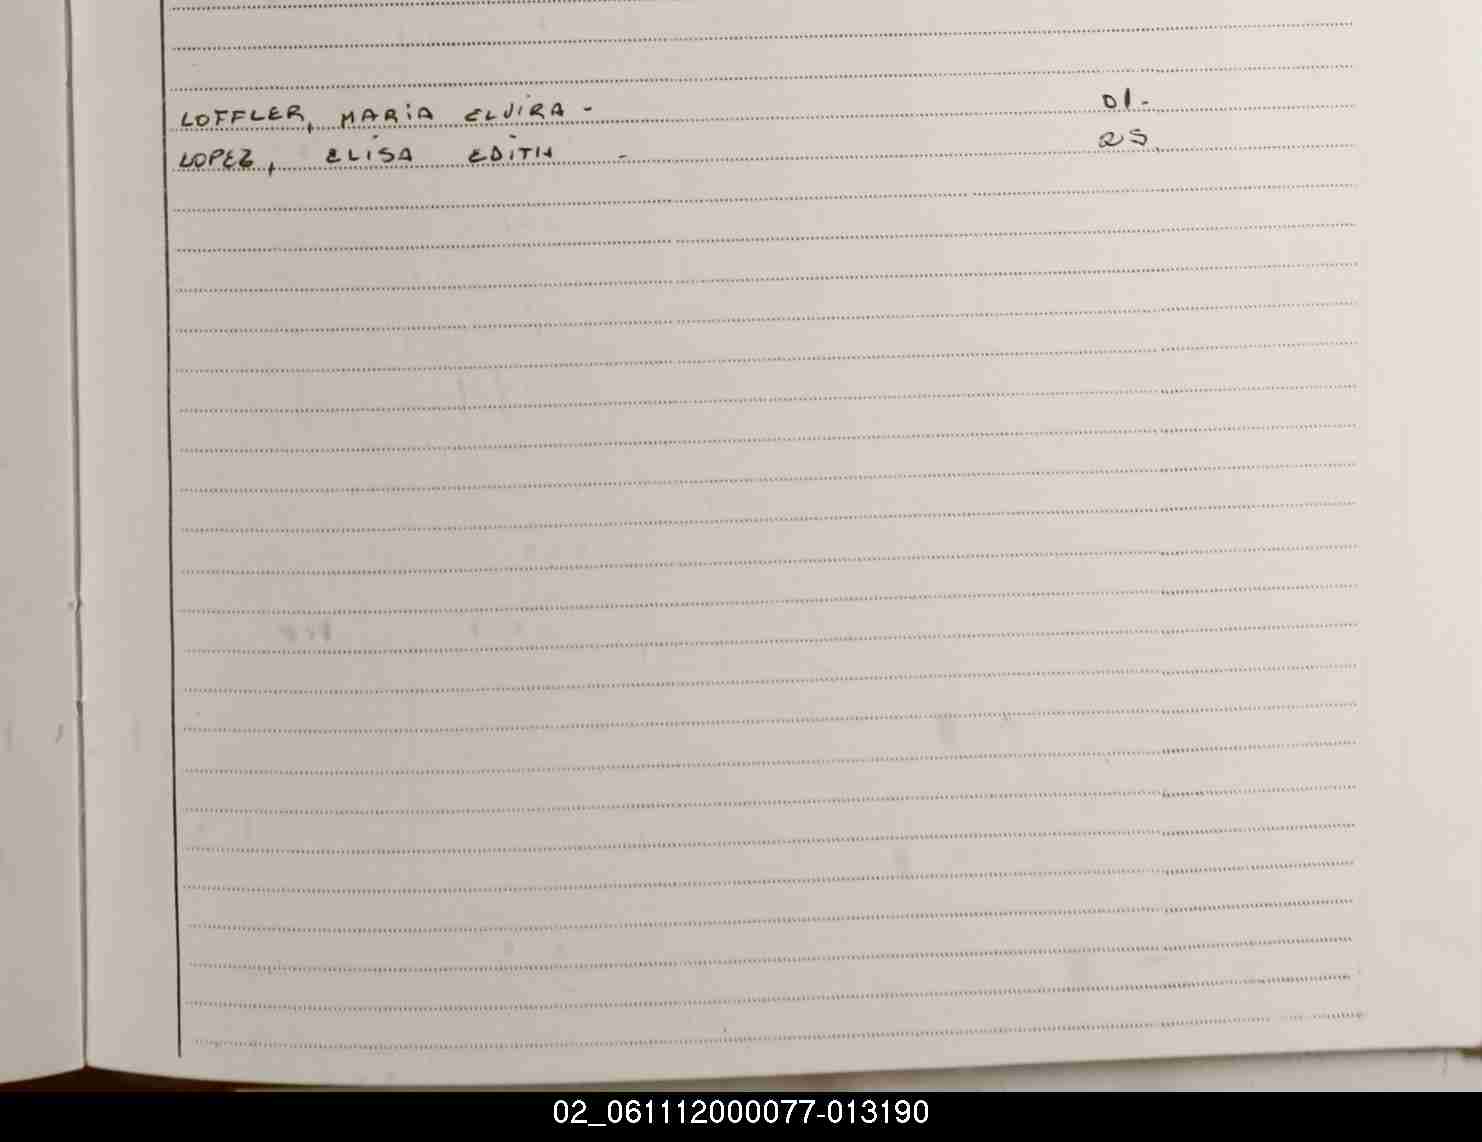 LOFFLER, MARIA ELVIRA - 01-
LOPEZ, ELISA EDITH - 25
02_061112000077-013190